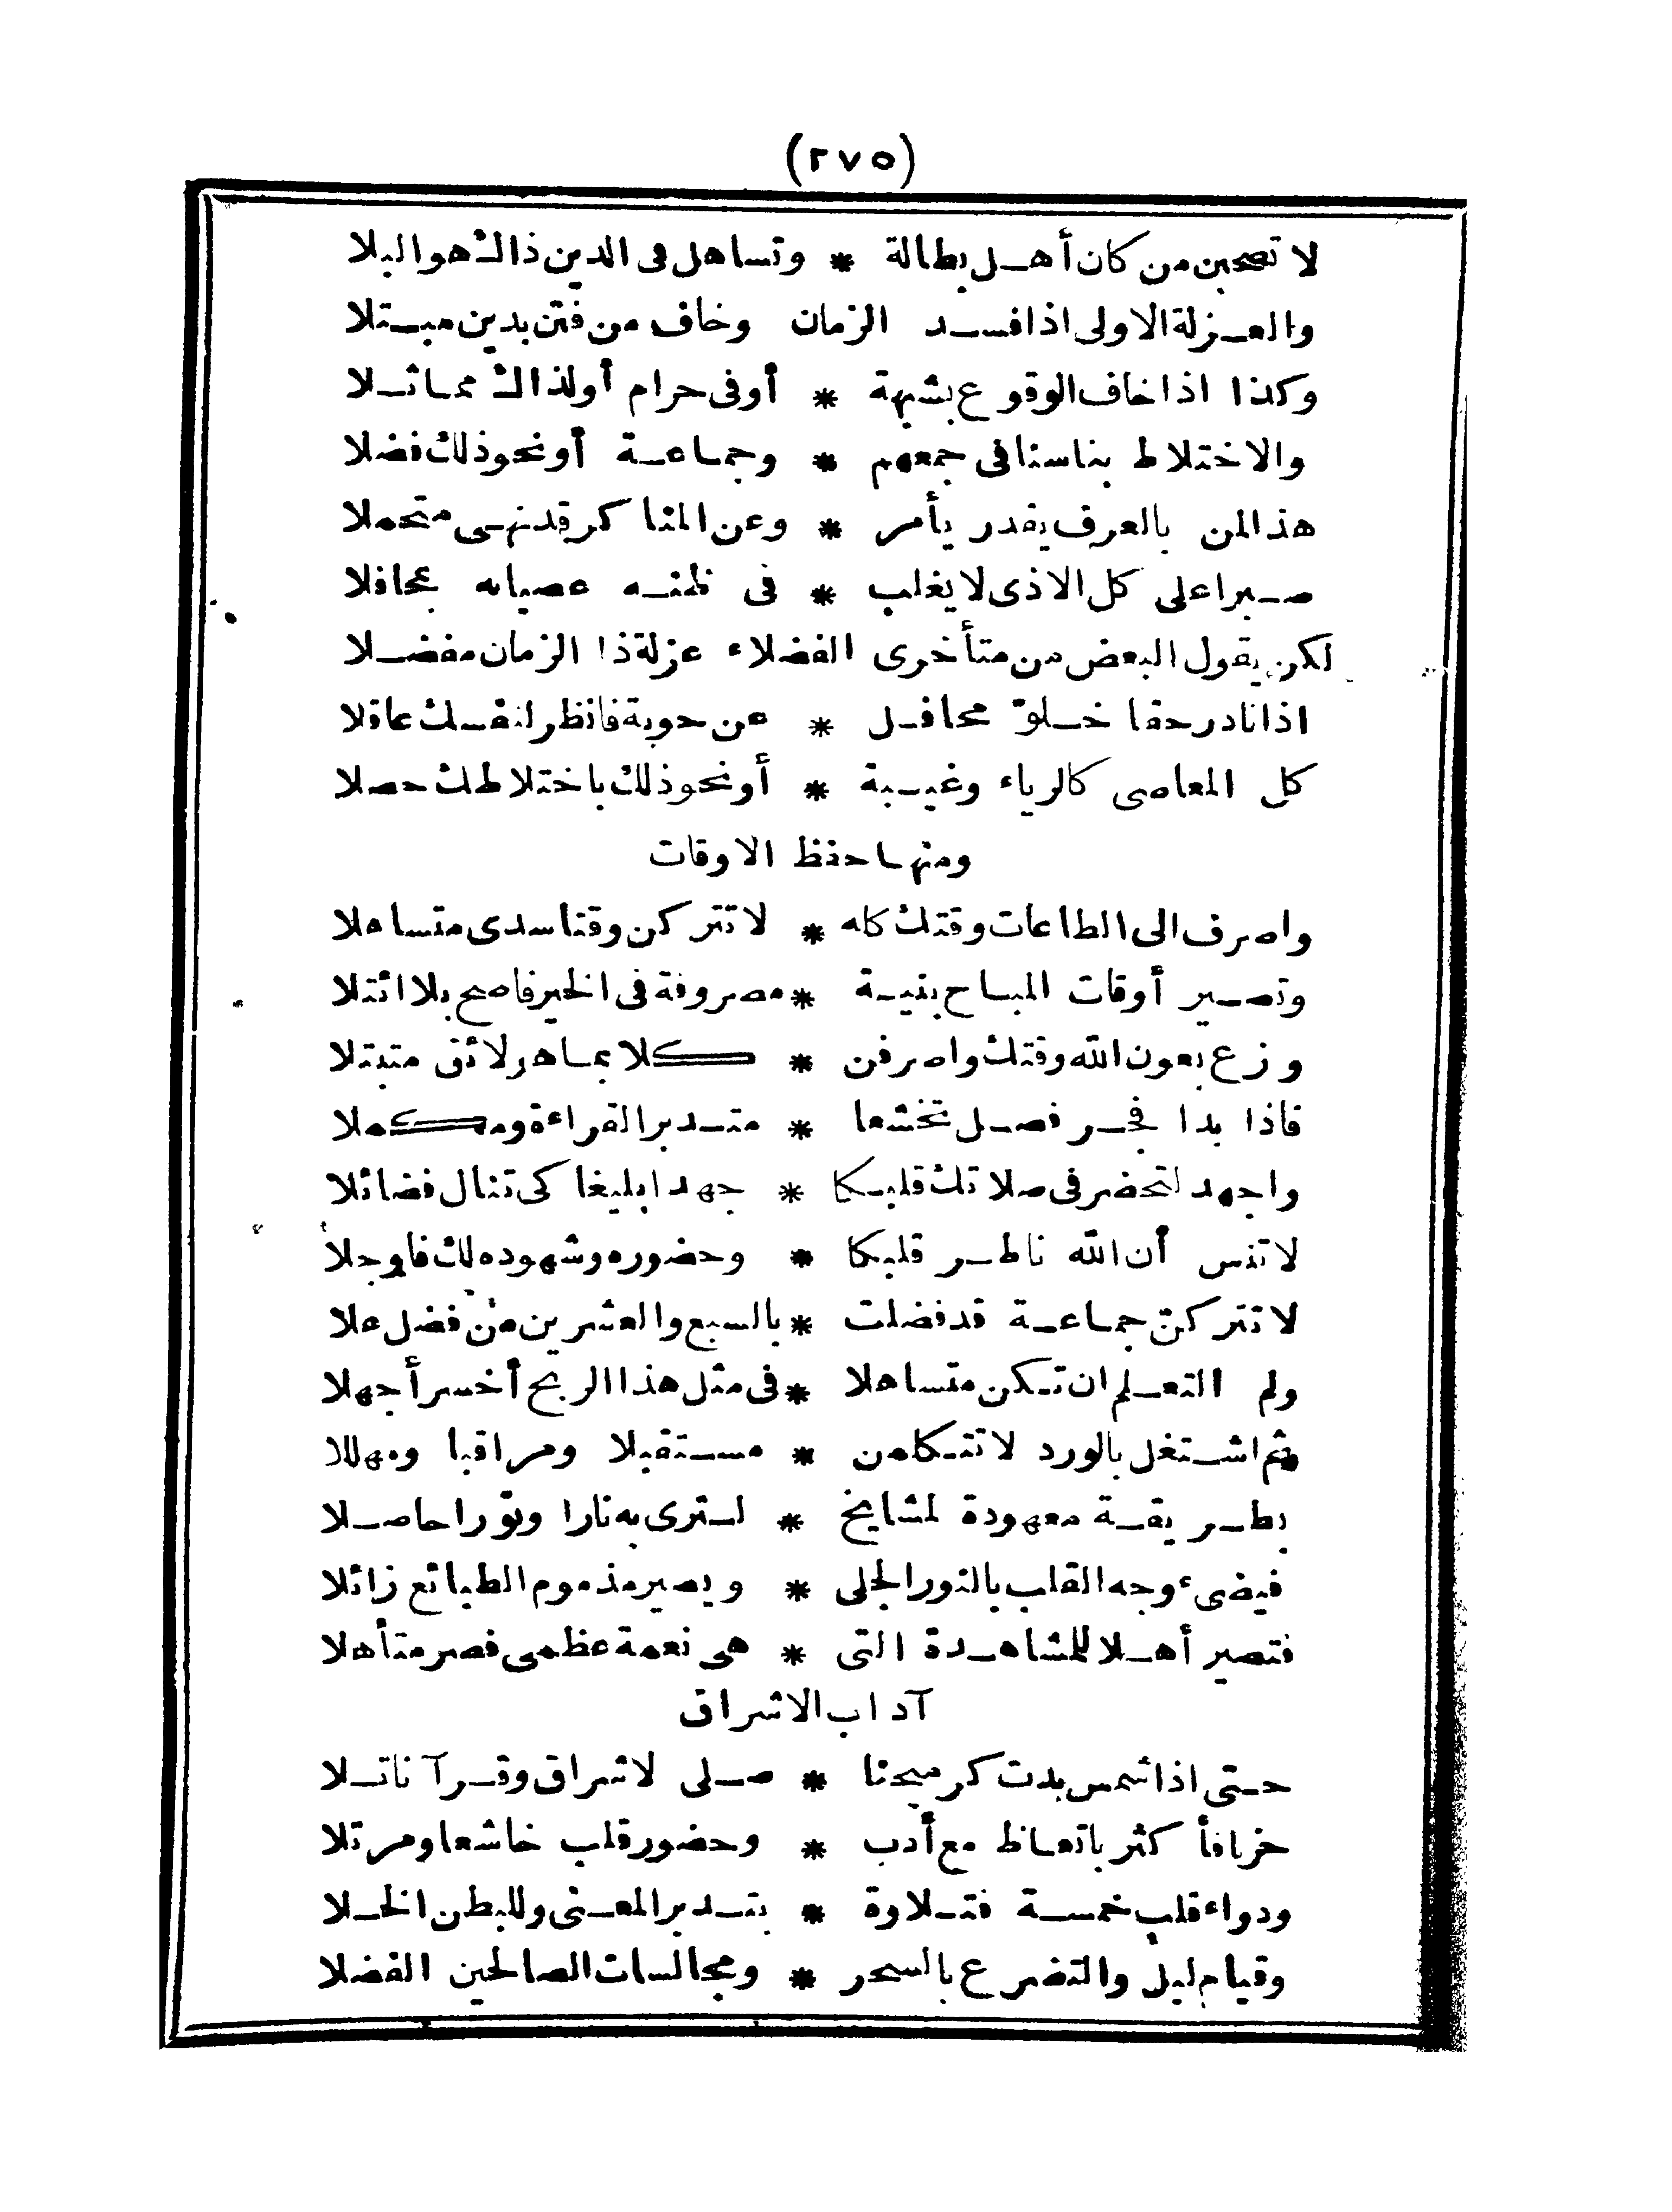 (٢٧٥)
لا تصحبن من كان أهل بطالة * وتساهل فى الدين ذاك هو البلا
والعزلة الاولى اذا فسد الزمان وخاف من فتن بدين مبتلا
وكذا اذا خاف الوقوع بشبهة * أو فى حرام أو لذاك مماثلا
والاختلاط بناسنا فى جمعهم * وجماعة أو نحو ذلك فضلا
هذا لمن بالعرف يقدر يأمر * وعن المناكر قد نهى متحملا
صبرا على كل الاذى لا يغلب * فى ظنه عصيانه بمحافلا
لكن يقول البعض من متأخرى الفضلاء عزلة ذا الزمان مفضلا
اذ نادر حقا خلو محافل * عن حوبة فانظر لنفسك عاقلا
كل المعاصى كالرياء وغيبة * أو نحو ذلك باختلاطك حصلا
ومنها حفظ الاوقات
واصرف الى الطاعات وقتك كله * لا تتركن وقتا سدى متساهلا
وتصير أوقات المباح بنية * مصروفة فى الخير فاصح بلا ائتلا
وزع بعون الله وقتك واصرفن * كلا بما هو لائق متبتلا
فاذا بدا فجر فصل تخشعا * متدبر القراءة ومكملا
واجهد لتحضر فى صلاتك قلبكا * جهدا بليغا كى تنال فضائلا
لا تنس أن الله ناظر قلبكا * وحضوره وشهوده لك فاوجلا
لا تتركن جماعة قد فضلت * بالسبع والعشرين من فضل علا
ولم التعلم ان تكن متساهلا * فى مثل هذا الربح أخسر أجهلا
ثم اشتغل بالورد لا تتكلمن * مستقبلا ومراقبا ومهللا
بطريقة معهودة لمشايخ * لترى به نارا ونورا حاصلا
فيضىء وجه القلب بالنور الجلى * ويصير مذموم الطبائع زائلا
فتصير أهلا للمشاهدة التى * هى نعمة عظمى فصر متأهلا
آداب الاشراق
حتى اذا شمس بدت كرميحنا * صلى لاشراق وقرآنا تلا
حزبا فأكثر باتعاظ مع أدب * وحضور قلب خاشعا ومرتلا
ودواء قلب خمسة فتلاوة * بتدبر المعنى وللبطن الخلا
وقيام ليل والتضرع بالسحر * ومجالسات الصالحين الفضلا